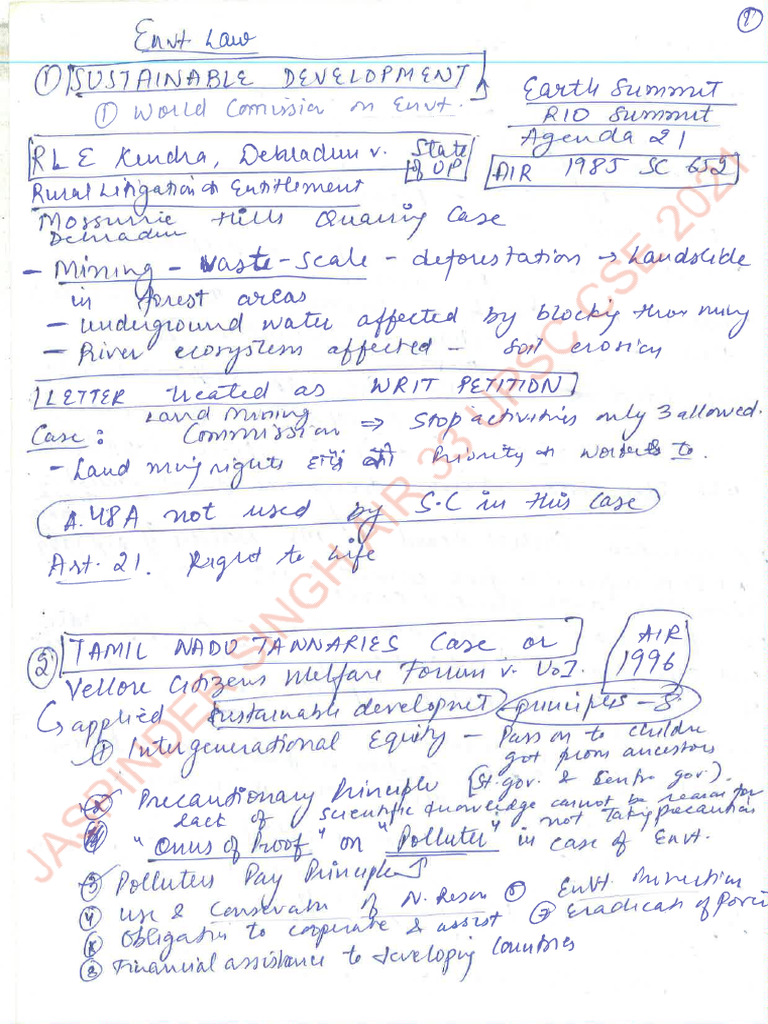 1
Envt Law
① SUSTAINABLE DEVELOPMENT
① World Comission on Envt.
Earth Summit
RIO Summit
Agenda 21
RLE Kendra, Dehradun v. State of UP
AIR 1985 SC 652
Rural Litigation & Entitlement
Mossurrie Hills Quarring Case
Dehradun
- Mining - Vaste-Scale - deforestation → Landslide
in forest areas
- Underground water affected by blocking thor mining
- River ecosystem affected - Soil erosion
LETTER treated as WRIT PETITION
Land Mining
Case: Commission ⇒ Stop activities only 3 allowed.
- Land mining rights Priority to
A.48A not used by S.C in this Case
Art. 21. Right to life
② TAMIL NADU TANNARIES Case or
AIR 1996
Vellore Citizens Welfare Forum v. UoI.
↳ applied Sustainable developmet principles - 8
① Intergenerational Equity - Pass on to children
got from ancestors
② Precautionary Principle (St. gov. & Centre gov.).
lack of scientific knowledge cannot be reason for
not taking precaution
"Onus of Proof" on "Polluter" in case of Envt.
③ Polluters Pay Principle
④ Use & Conservation of N. Reson ⑤ Envt. Protection
Obligation to cooperate & assist ⑦ Eradicati of Pover
⑧ Financial assistance to developing Countries
JASPINDER SINGH AIR 33 UPSC CSE 2021